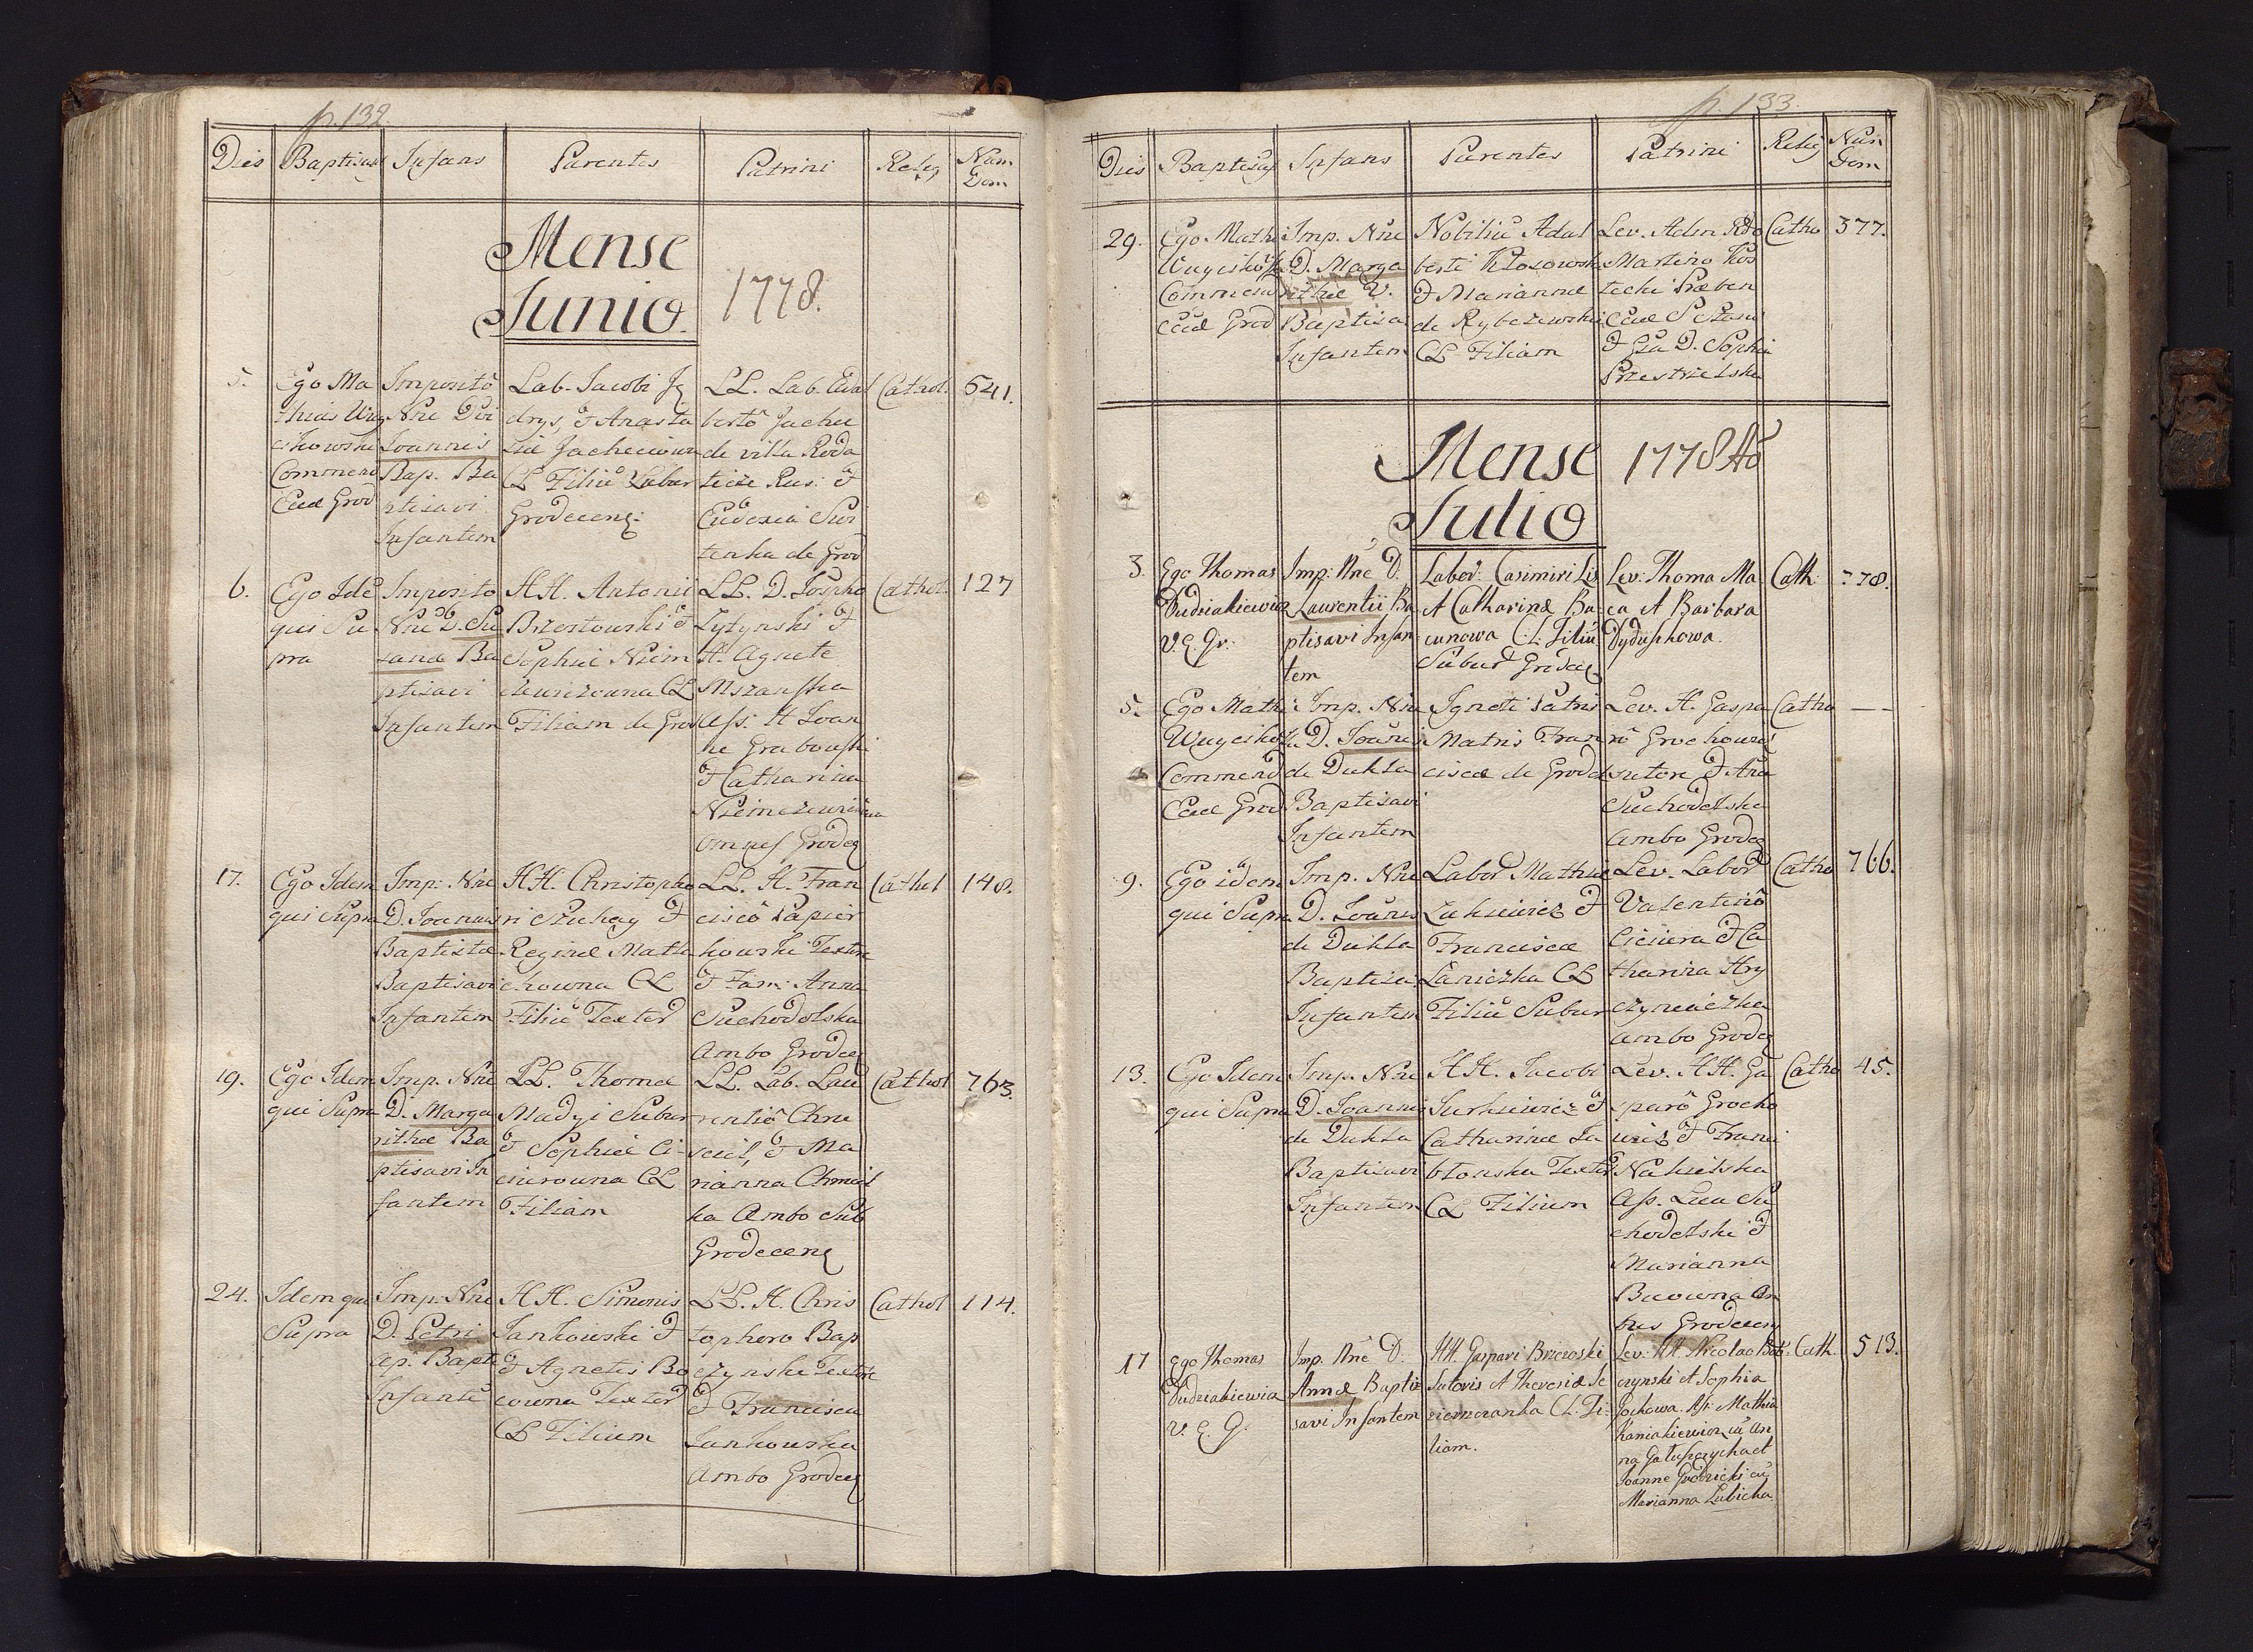 p. 132.
Dies Baptisans Infans Parentes Patrini Relig Num Dom
Mense
Junio. 1778.
5.
Ego Ma
thias Wuy
cikowski
Commend
Eccl Grod
Imposito
Nne Divi
Joannis
Bap. Ba
ptisavi
Infantem
Lab. Jacobi
drys, & Anasta
CL Filiũ Subur
Grodecens:
LL. Lab. Adal
bertô
de villa Roda
ticze Rus: &
Eudoxia
tenka de Grod
Cathol.
541.
6.
Ego Idẽ
qui Su
pra
Imposito
Nne D. Su
sanæ Ba
ptisavi
Infantem
HH. Antonii
Brzostowski &
Sophiæ Niem
czewiczowna CL
Filiam de Grod
LL. D. Josepho
Zytynski &
H. Agnete
Mszanska
Ass: H Joan
ne Grabowski
& Catharina
Niemczewiczowna
omnes Grodec
Cathol.
127
17.
Ego Idem
qui Supra
Imp: Nne
D. Joannis
Baptistæ
Baptisavi
Infantem
HH. Christopho
ri Czuhay &
Reginæ Math
chowna CL
Filiũ Textor
LL. H. Fran
ciscô Papier
kowski Textore
& Fam: Anna
Suchodolska
Ambo Grodec
Cathol
148.
19.
Ego Idem
qui Supra
Imp. Nne
D. Marga
rithæ Ba
ptisavi In
fantem
LL. Thomæ
Madyi Subur
& Sophiæ Ci-
ciurowna CL
Filiam
LL. Lab. Lau
rentiô Chru
sciel, & Ma
rianna Chmiel
ka Ambo Sub
Grodecens
Cathol
763.
24.
Idem qui
Supra
Imp. Nne
D. Petri
Ap. Bapti
Infantẽ
HH. Simonis
Jankowski &
& Agnetis Bo
cowna Textor
CL Filium
LL. H. Chris
tophoro Bap
czynski Textore
& Francisca
Jankowska
Ambo Grodec
Cathol
114.
p. 133.
Dies Baptisans Infans Parentes Patrini Relig Num Dom
29.
Ego Mathi
Wuycikowski
Commend
Eccl Grod
Imp. Nne
D. Marga
rithæ V.
Baptisa
Infantem
Nobiliũ Adal
berti Klosowski
& Mariannæ
de Rybczewski
CL Filiam
Lev. Adm Rdo
Martino Kos
tecki Præben
Eccl S
& Gsa D. Sophia
Przestrzelska
Catho
377.
Mense 1778 Ao
Julio
3.
Ego Thomas
Dudziakiewicz
V. E. Gr.
Imp: Nne D.
Laurentii Ba
ptisavi Infan
tem
Labor: Casimiri Lis
et Catharinæ Ba-
cunowa C:L: Filiũ
Subur Grodec
Lev: Thoma Ma
ca et Barbara
Dyduszkowa.
Cath:
778.
5.
Ego Mathi
Wuyciko
Commend
Eccl Grod
Imp. Nne
D. Joãnis
de Dukla
Baptisavi
Infantem
Ignoti Patris
Matris Fran
ciscæ de Grodek
Lev. H. Gaspa
rô Grochowicz
sutore & Aña
Suchodolska
Ambo Grodec
Catho
— —
9.
Ego idem
qui Supra
Imp. Nne
D. Joãnis
de Dukla
Baptisa
Infantem
Labor Mathiæ
Zukiewicz &
Franciscæ
Laniczka CL
Filiũ Subur
Lev. Labor
Valentinô
Ciciura & Ca
tharina Hry
czyniaczka
ambo Grodec
Catho
766.
13.
Ego Idem
qui Supra
Imp. Nne
D. Joannis
de Dukla
Baptisavi
Infantem
HH. Jacobi
Jurkiewicz &
Catharinæ Ja
blonska Textor
CL Filium
Lev. HH. Ga
sparô Grocho
wicz & Franci
Nakielska
Ass. Luca Su
chodolski &
Marianna
Bucowna Om
bus Grodecen
Catho
45.
17
Ego Thomas
Dudziakiewicz
V. E. G.
Imp. Nne D.
Annæ Bapti
savi Infantem
HH. Gaspari Brzezoski
Sutoris et Theresiæ Se
CL. Fi-
liam.
Lev: HH. Nicolao Bob
czynski et Sophia
Jockowa. Ass: Mathia
Kaniakiewicz cũ An
na Galuszczycha et
Joanne Gudzicki cũ
Marianna Lubicka
Cath.
513.